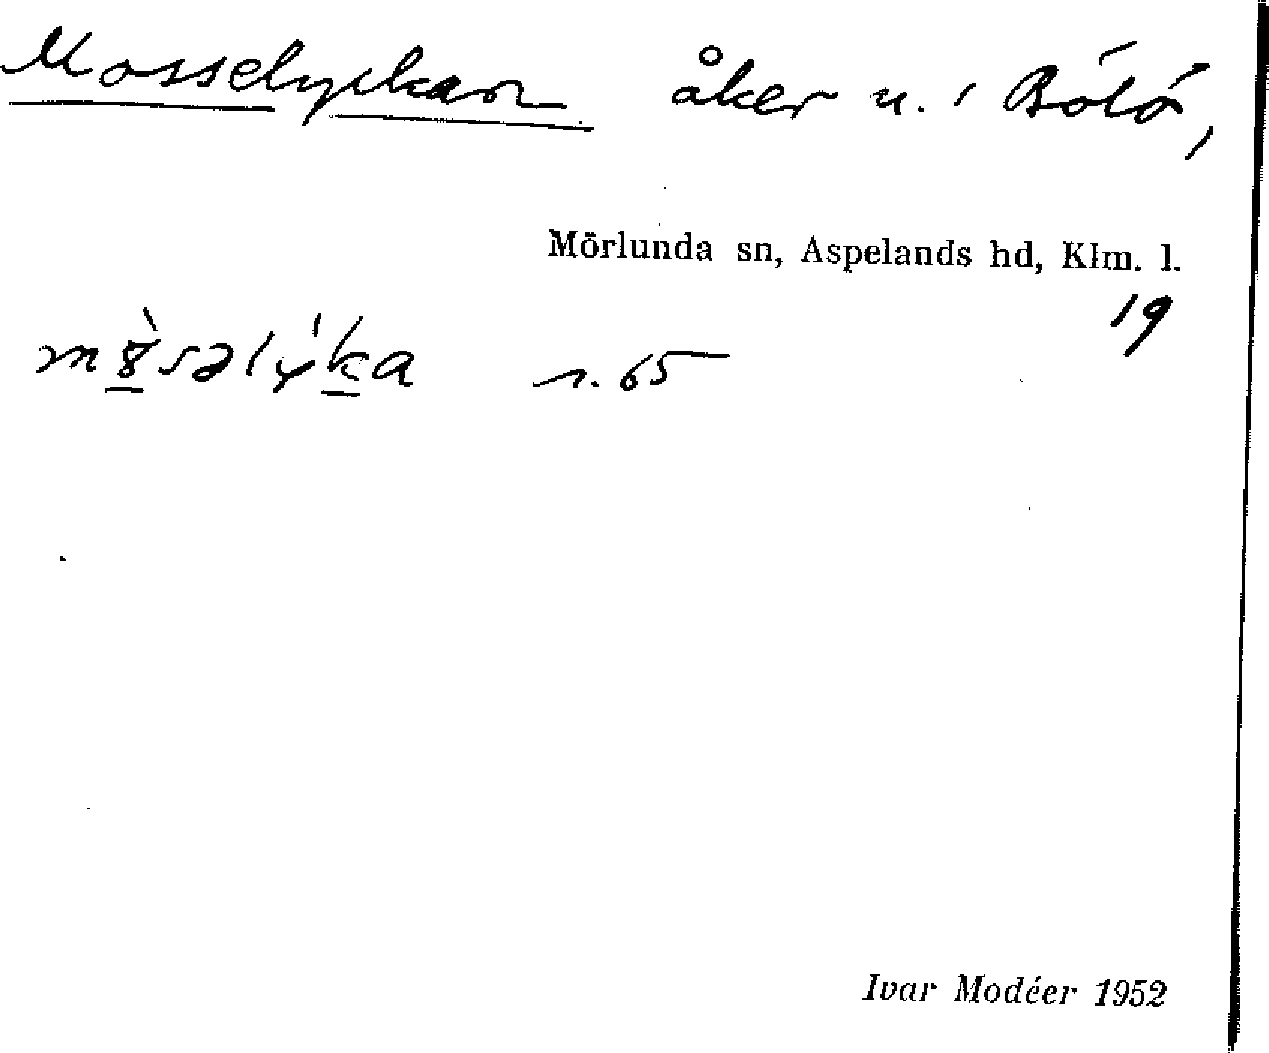 Mosselyckan åker u. i Bölö,
Mörlunda sn, Aspelands hd, Klm. l.
19
s. 65
Ivar Modéer 1952